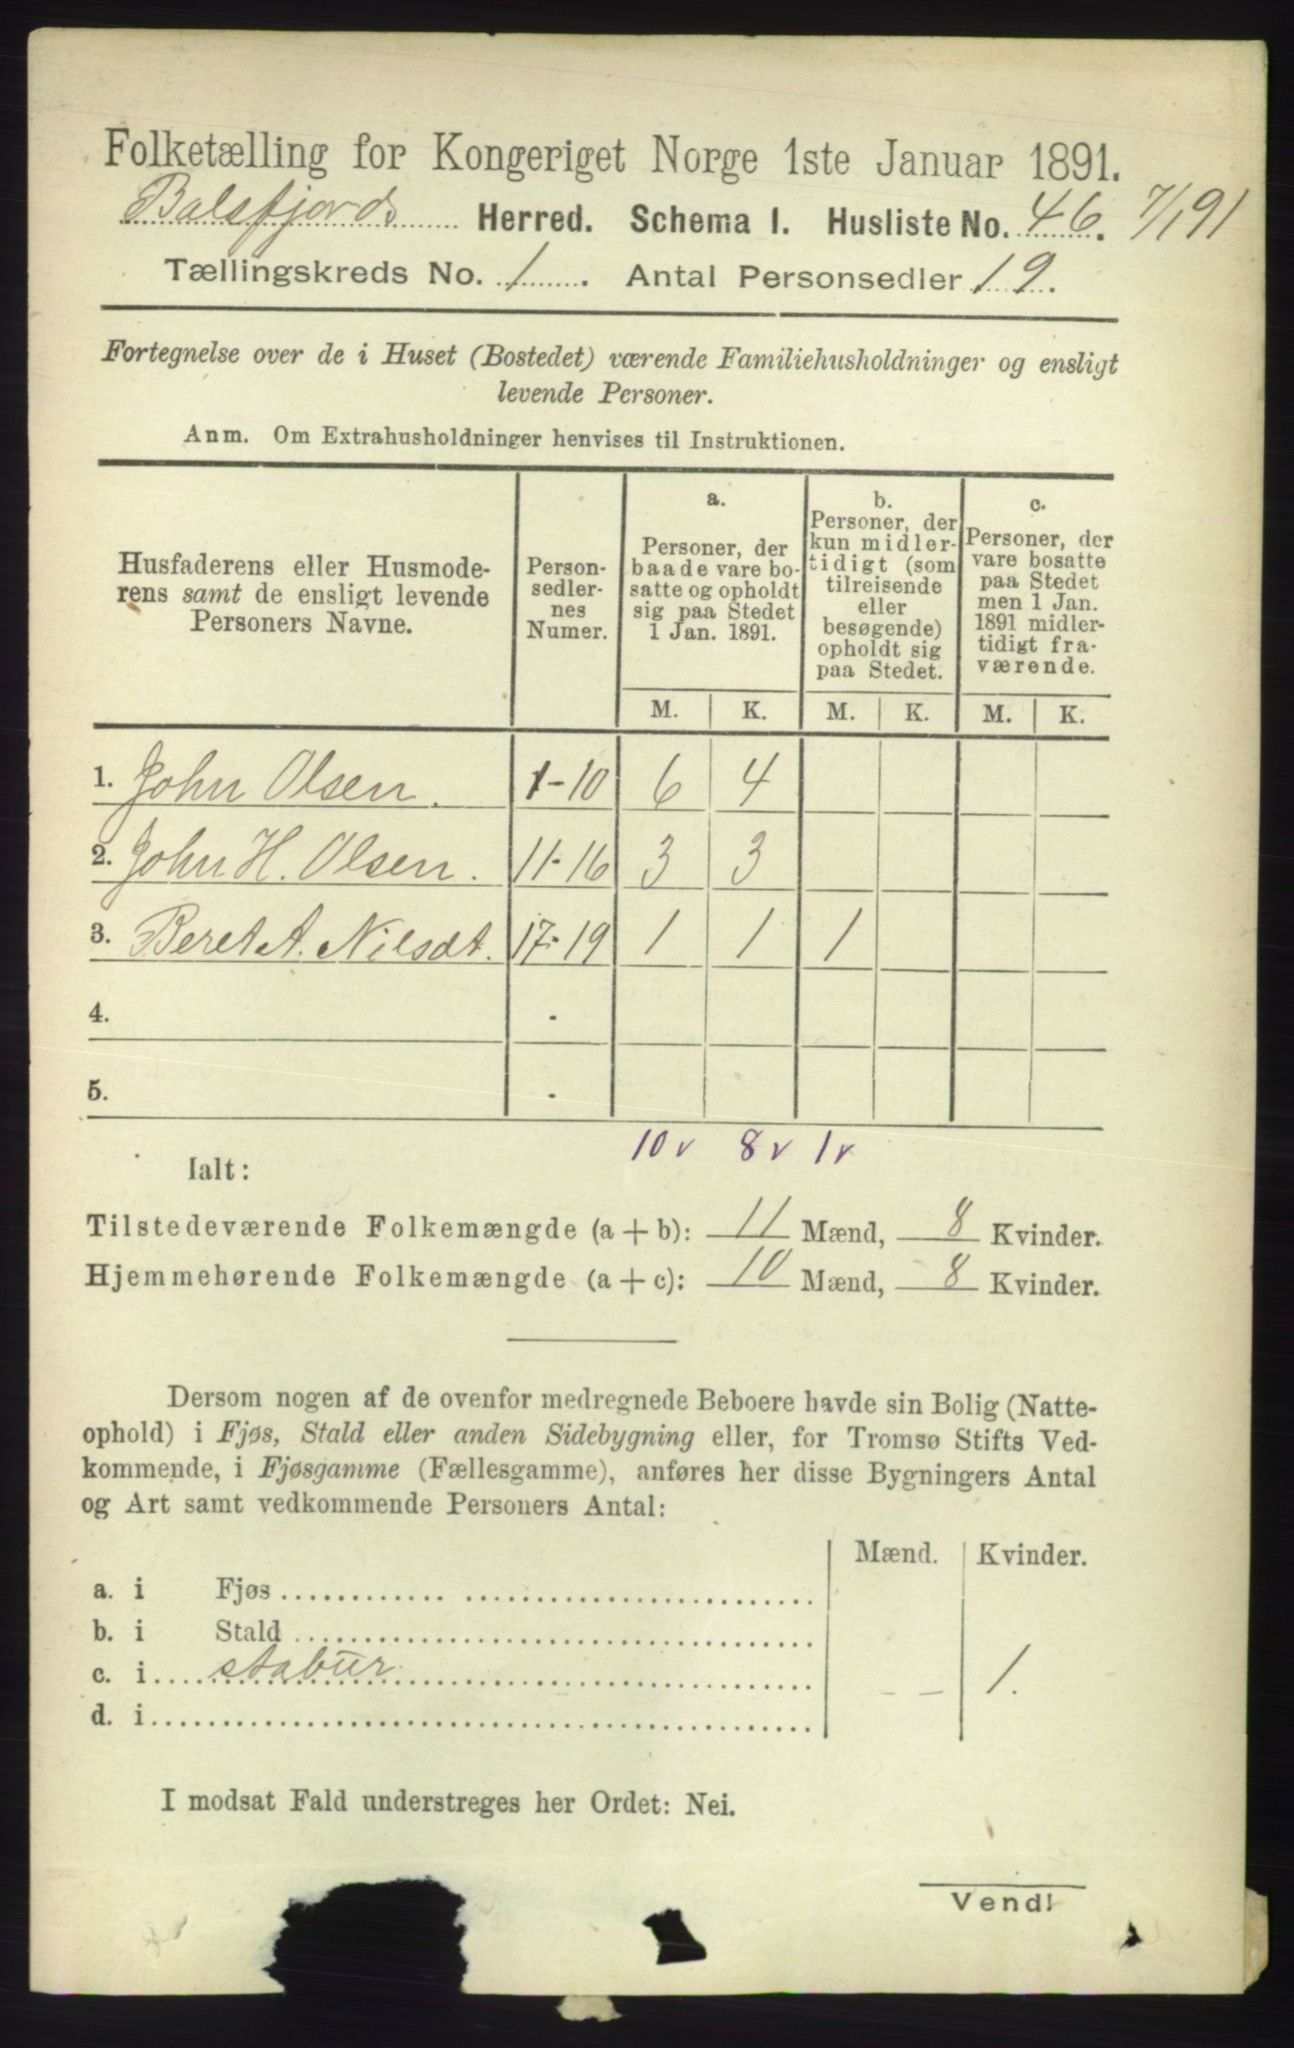 Folketælling for Kongeriget Norge 1ste Januar 1891.
Balsfjords Herred. Schema I. Husliste No. 46. 7/1 91
Tællingskreds No. 1. Antal Personsedler 19.
Fortegnelse over de i Huset (Bostedet) værende Familiehusholdninger og ensligt
levende Personer.
Anm. Om Extrahusholdninger henvises til Instruktionen.
Husfaderens eller Husmode-
rens samt de ensligt levende
Personers Navne.
Person-
sedler-
nes
Numer.
a.
Personer, der
baade vare bo-
satte og opholdt
sig paa Stedet
1 Jan. 1891.
b.
Personer, der
kun midler-
tidigt (som
tilreisende
eller
besøgende)
opholdt sig
paa Stedet.
c.
Personer, der
vare bosatte
paa Stedet
men 1 Jan.
1891 midler-
tidigt fra-
værende.
M. K. M. K. M. K.
1. John Olsen. 1-10 6 4
2. John H. Olsen. 11-16 3 3
3. Beret A. Nilsdt. 17-19 1 1 1
4. -
5. -
10 v 8 v 1 v
Ialt:
Tilstedeværende Folkemængde (a + b): 11 Mænd, 8 Kvinder.
Hjemmehørende Folkemængde (a + c): 10 Mænd, 8 Kvinder.
Dersom nogen af de ovenfor medregnede Beboere havde sin Bolig (Natte-
ophold) i Fjøs, Stald eller anden Sidebygning eller, for Tromsø Stifts Ved-
kommende, i Fjøsgamme (Fællesgamme), anføres her disse Bygningers Antal
og Art samt vedkommende Personers Antal:
Mænd. Kvinder.
a. i Fjøs
b. i Stald
c. i stabur - - 1.
d. i
I modsat Fald understreges her Ordet: Nei.
Vend!